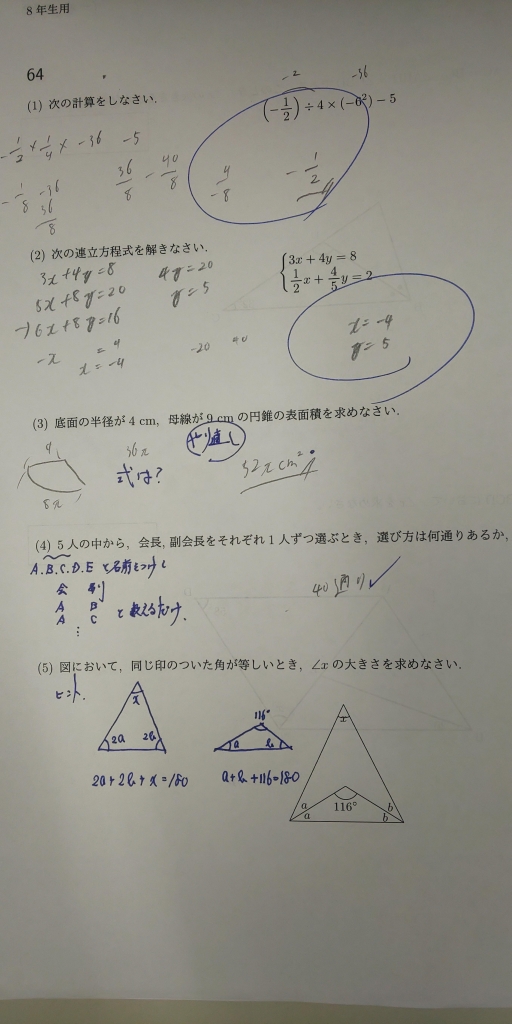 8 年生用
64
-2 -36
(1) 次の計算をしなさい.
(-1/2) ÷ 4 × (-6²) - 5
-1/2 × 1/4 × -36 -5
-1/8 -36
36/8
36/8 - 40/8
4/-8
-1/2
(2) 次の連立方程式を解きなさい.
3x + 4y = 8
1/2 x + 4/5 y = 2
3x+4y=8 4y=20
5x+8y=20 y=5
→6x+8y=16
-x = 4
x=-4
-20 40
x=-4
y=5
(3) 底面の半径が 4 cm, 母線が 9 cm の円錐の表面積を求めなさい.
やり直し
4
8π
36π
式は?
52πcm²
(4) 5 人の中から, 会長, 副会長をそれぞれ 1 人ずつ選ぶとき, 選び方は何通りあるか,
A.B.C.D.E と名前をつけて
会 副
A B
A C
⋮
と数えるだけ.
40通り
(5) 図において, 同じ印のついた角が等しいとき, ∠x の大きさを求めなさい.
ヒント.
x
2a 2b
2a+2b+x=180
116°
a b
a+b+116=180
x
116°
a b
a b